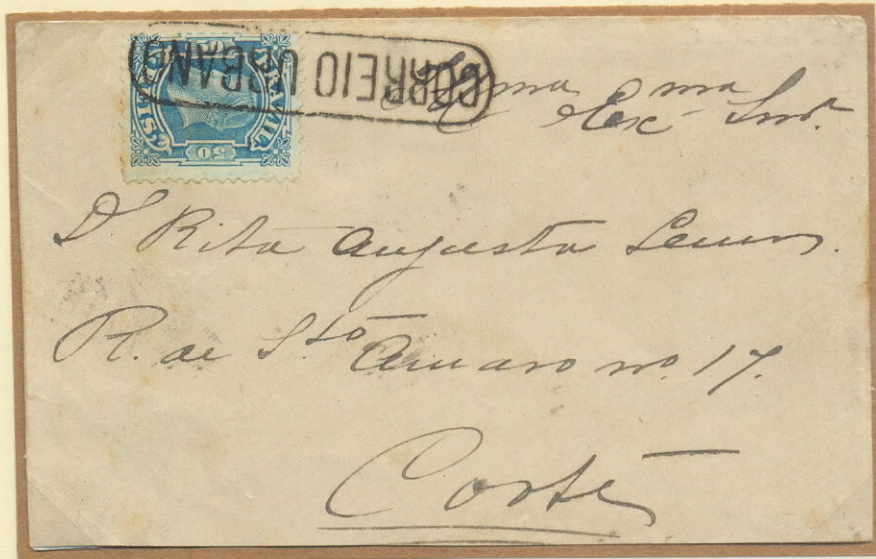 CORREIO URBANO
BRASIL
50
Illma Exma Snra.
Da Rita Augusta Lemos.
R. de Sto Amaro no. 17.
Corte